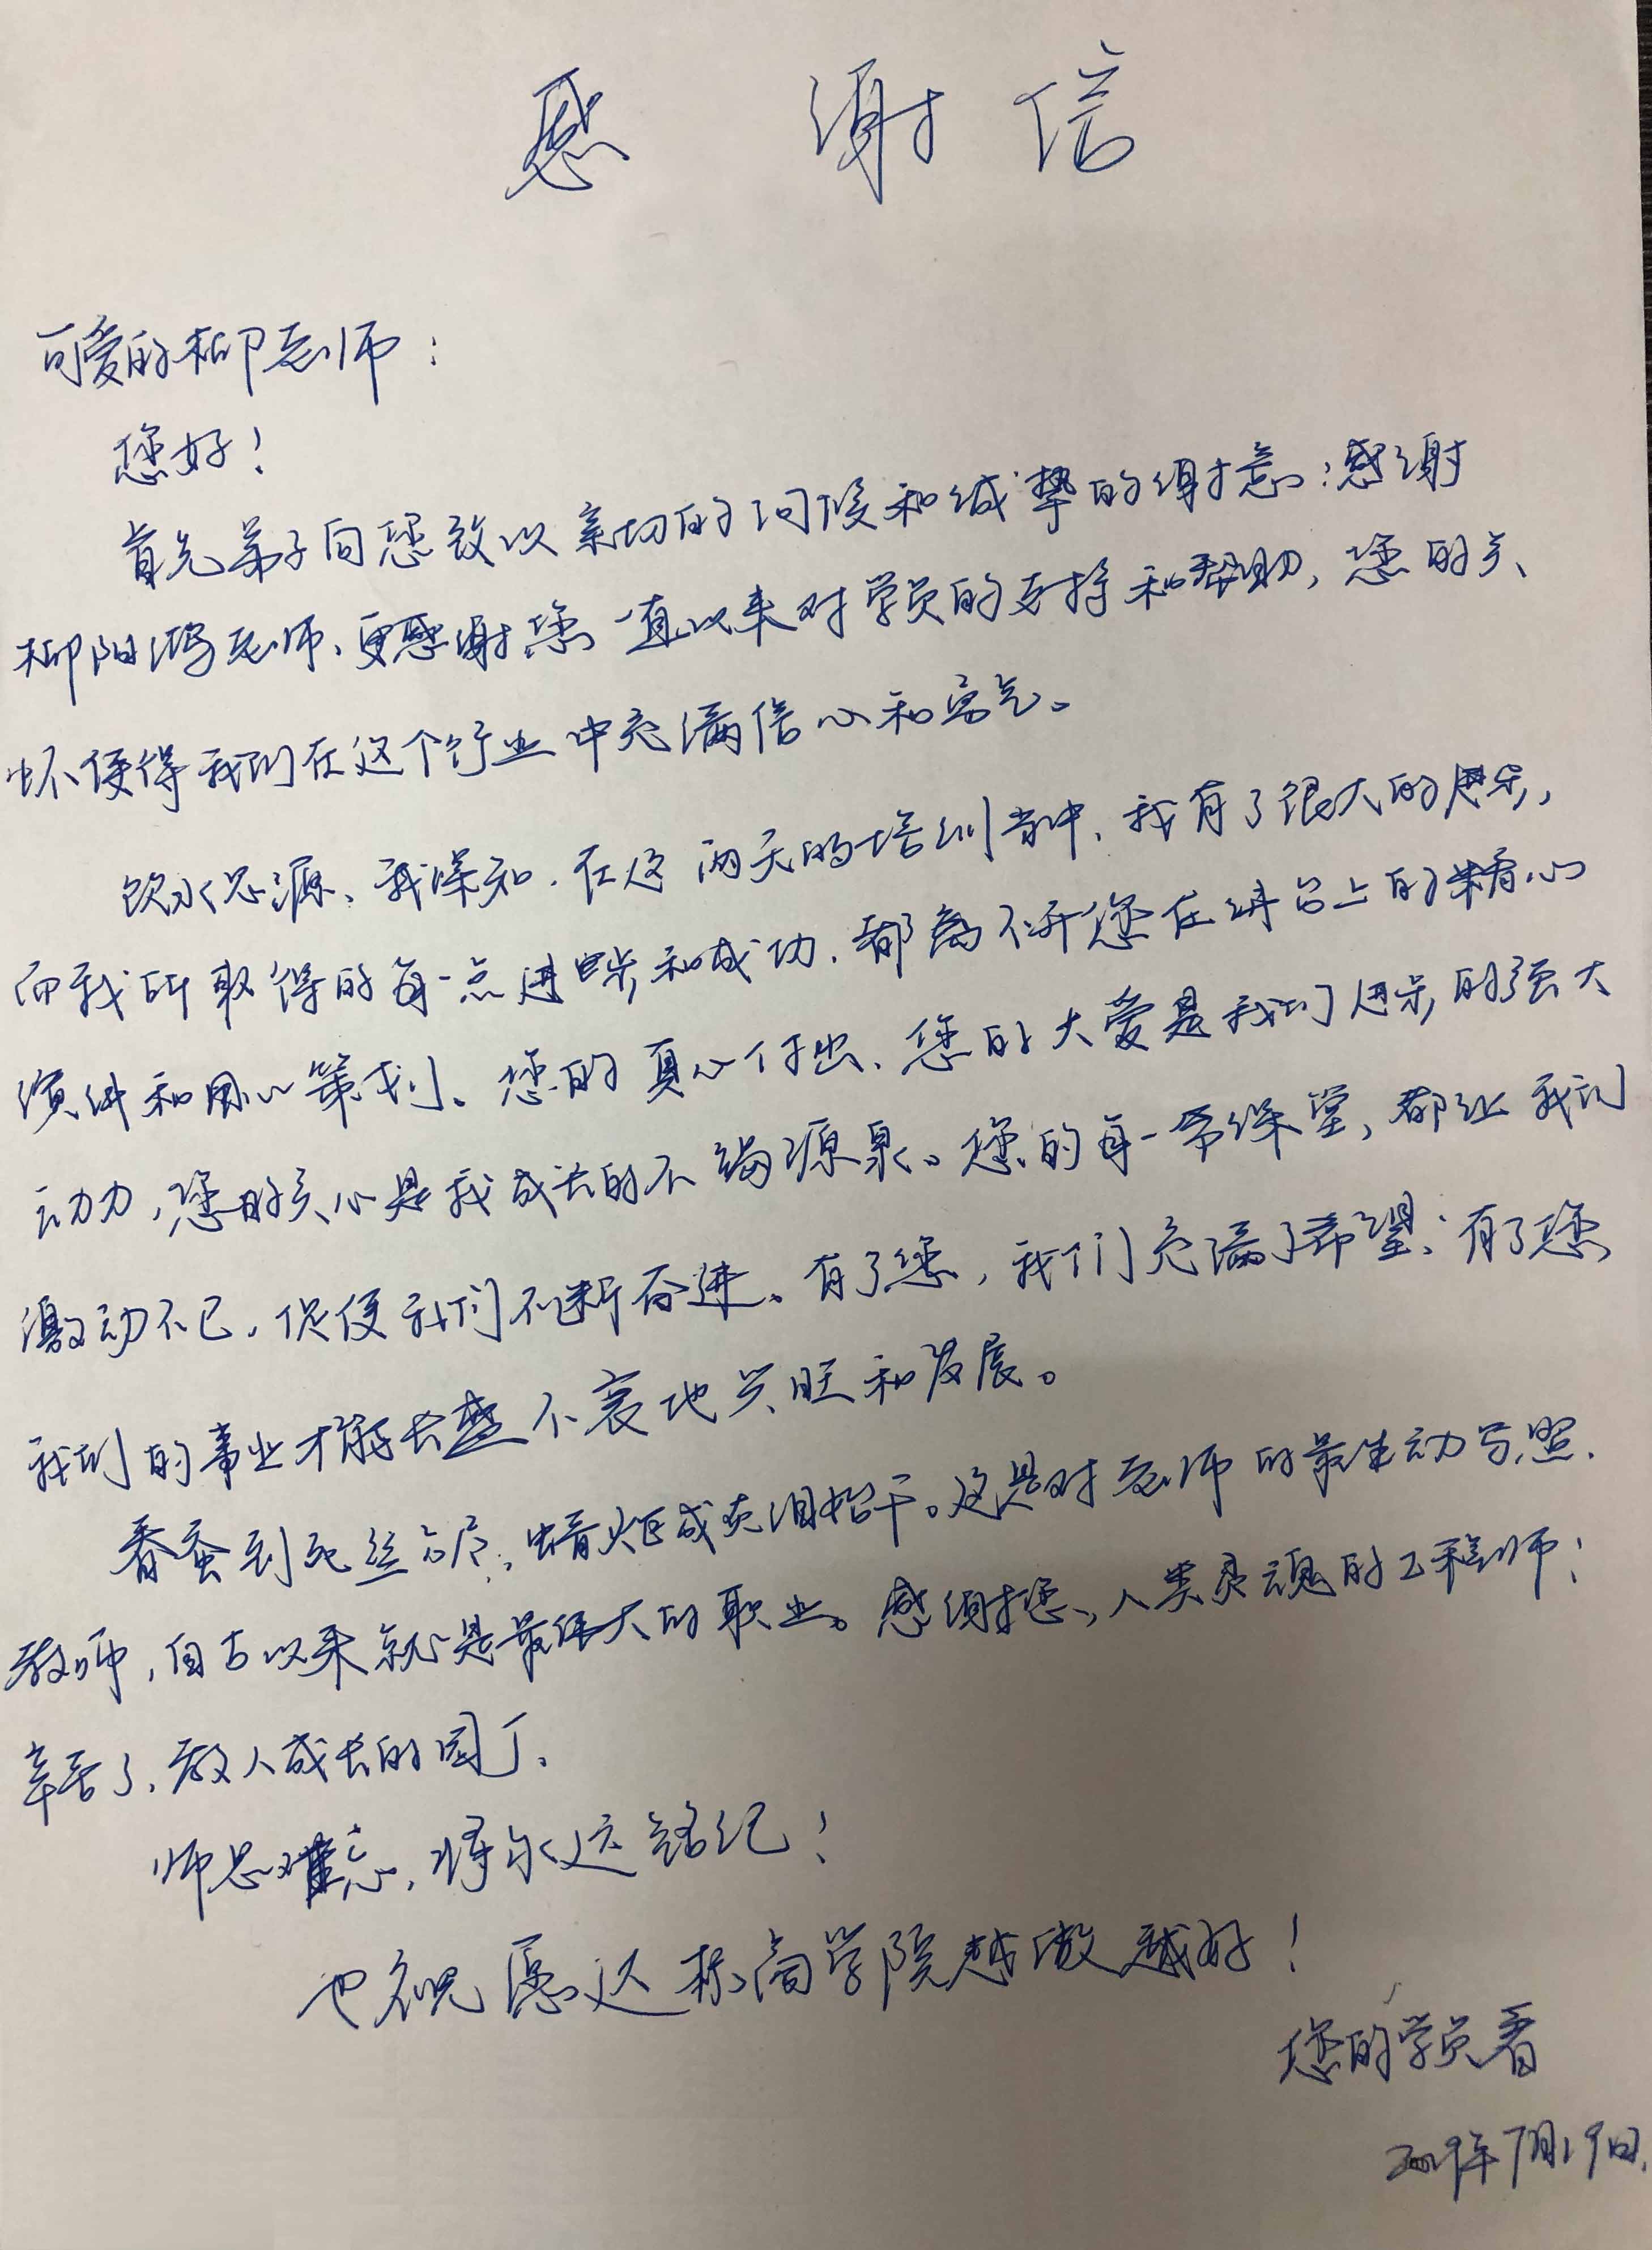 感谢信
可爱的柳老师：
您好！
首先弟子向您致以亲切的问候和诚挚的谢意：感谢
柳阳鸿老师、更感谢您一直以来对学员的支持和帮助，您的关
怀使得我们在这个行业中充满信心和勇气。
饮水思源、我深知．在这两天的培训当中、我有了很大的进步，
而我所取得的每一点进步和成功．都离不开您在讲台上的精心
演讲和用心策划、您的真心付出、您的大爱是我们进步的强大
动力，您的关心是我成长的不竭源泉。您的每一节课堂，都让我们
激动不已，促使我们不断奋进。有了您，我们充满了希望；有了您
我们的事业才能长盛不衰地兴旺和发展。
春蚕到死丝方尽，蜡炬成灰泪始干。这是对老师的最生动写照．
教师，自古以来就是最伟大的职业。感谢您，人类灵魂的工程师；
辛苦了，教人成长的园丁．
师恩难忘，将永远铭记！
也祝愿达标商学院越做越好！
您的学员春
2019年7月19日．